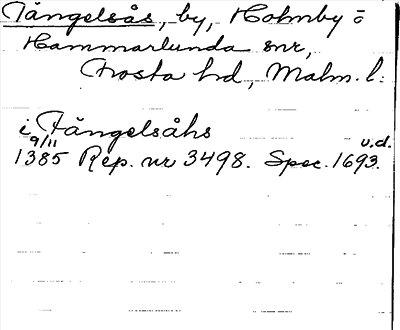 Tångelsås, by, Holmby o
Hammarlunda snr,
Frosta hd, Malm. l.
i Tångelsåhs
9/11 u.d.
1385 Rep. nr 3498. Spec. 1693.